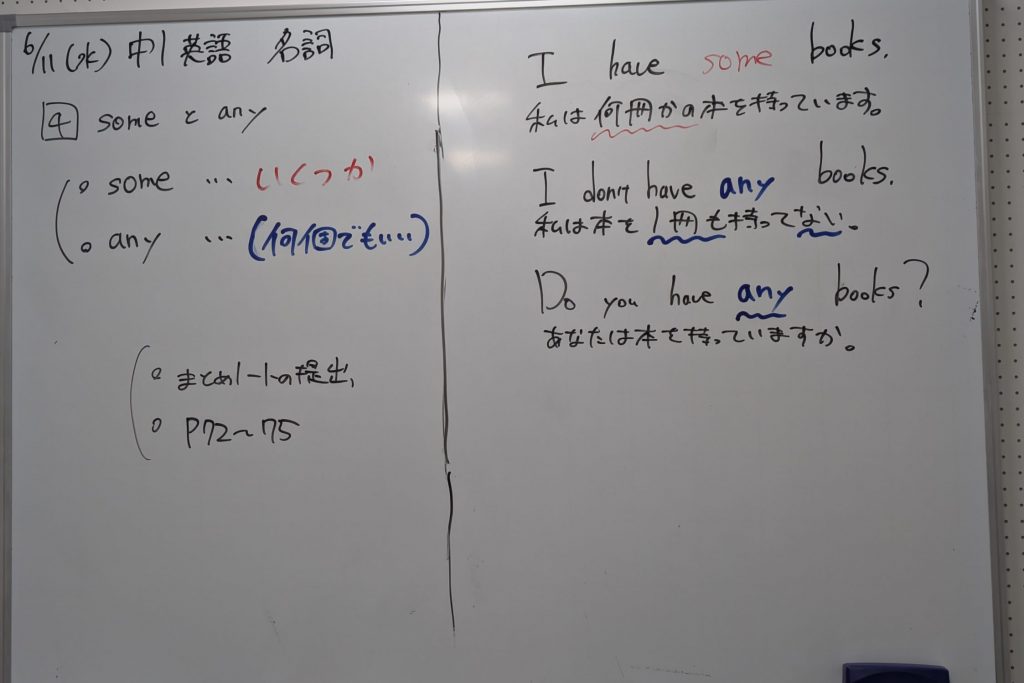 6/11(水) 中1 英語 名詞
4 some と any
○ some … いくつか
○ any … (何個でもいい)
○ まとめノートの提出、
○ P72〜75
I have some books.
私は何冊かの本を持っています。
I don't have any books.
私は本を1冊も持ってない。
Do you have any books?
あなたは本を持っていますか。